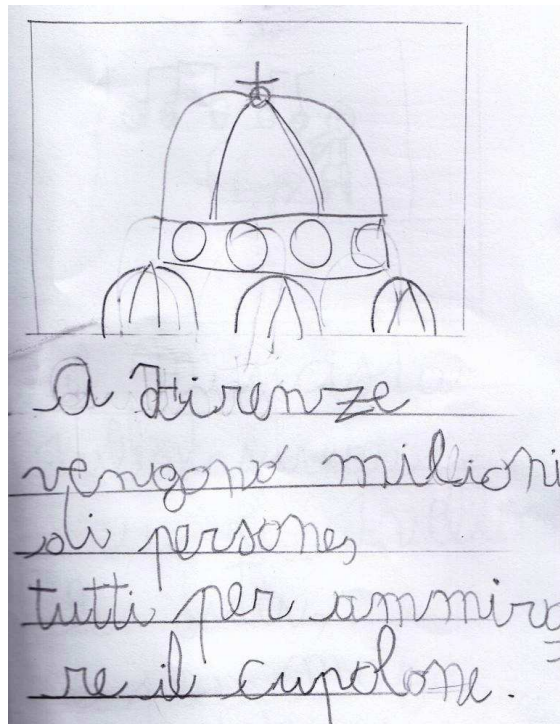 A Firenze
vengono milioni
di persone,
tutti per ammira
re il cupolone.